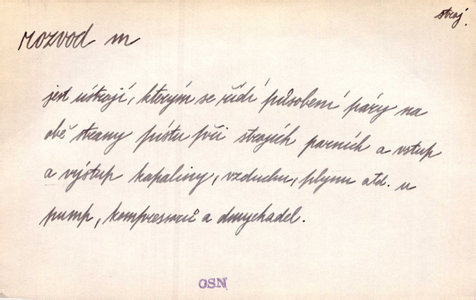 stroj.
rozvod m
jest ústrojí, kterým se řídí působení páry na
obě strany pístu při strojích parních a vstup
a výstup kapaliny, vzduchu, plynu atd. u
pump, kompresorů a dmychadel.
GSN